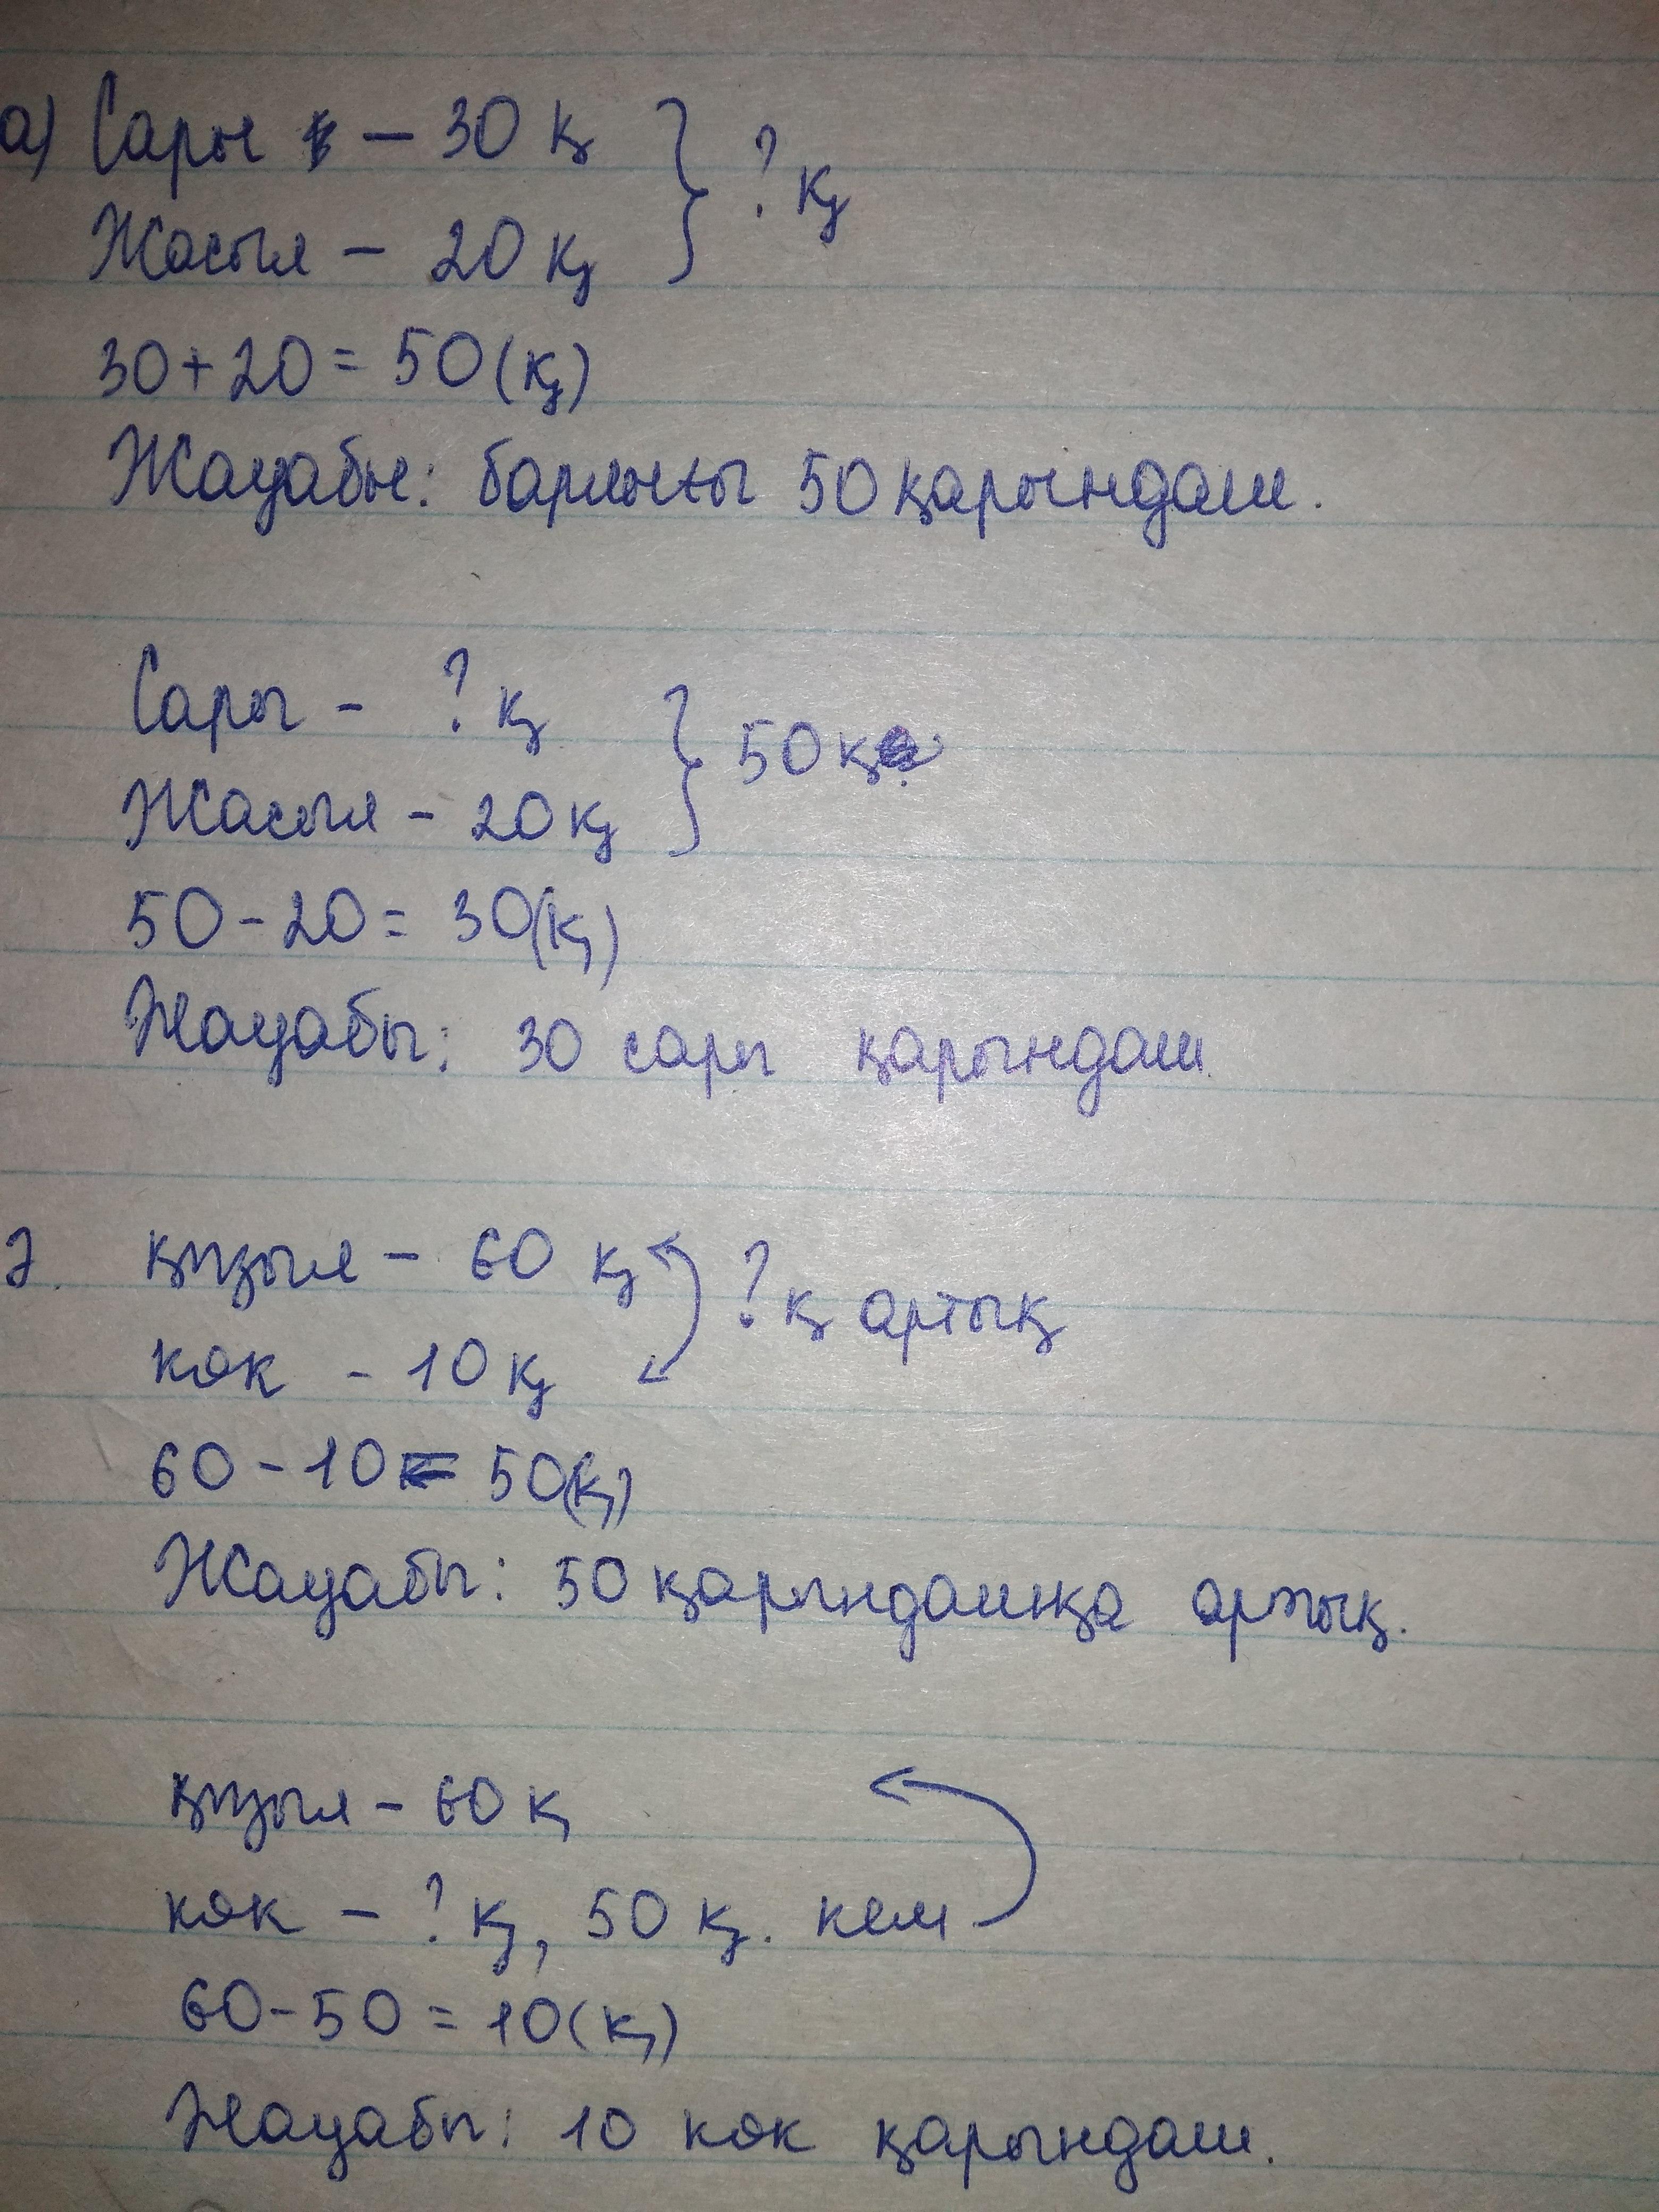 а) Сары – 30 қ
? қ
Жасыл – 20 қ
30+20= 50(қ)
Жауабы: барлығы 50 қарындаш.
Сары – ? қ
50 қ
Жасыл – 20 қ
50-20= 30(қ)
Жауабы: 30 сары қарындаш
ә. қызыл – 60 қ
? қ артық
көк - 10 қ
60-10= 50(қ)
Жауабы: 50 қарындашқа артық.
қызыл – 60 қ
көк – ? қ, 50 қ. кем
60-50=10(қ)
Жауабы: 10 көк қарындаш.